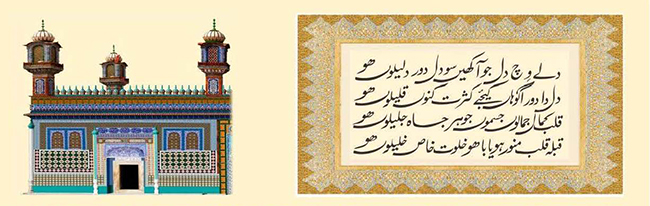 دلے وچ دل جو آکھیں سو دل دور دلیلوں ھو
دل دا دور اگوہاں کیجئے کثرت کنوں قلیلوں ھو
قلب کمال جمالوں جسموں جوہر جاہ جلیلوں ھو
قبلہ قلب منور ہویا باھو خلوت خاص خلیلوں ھو